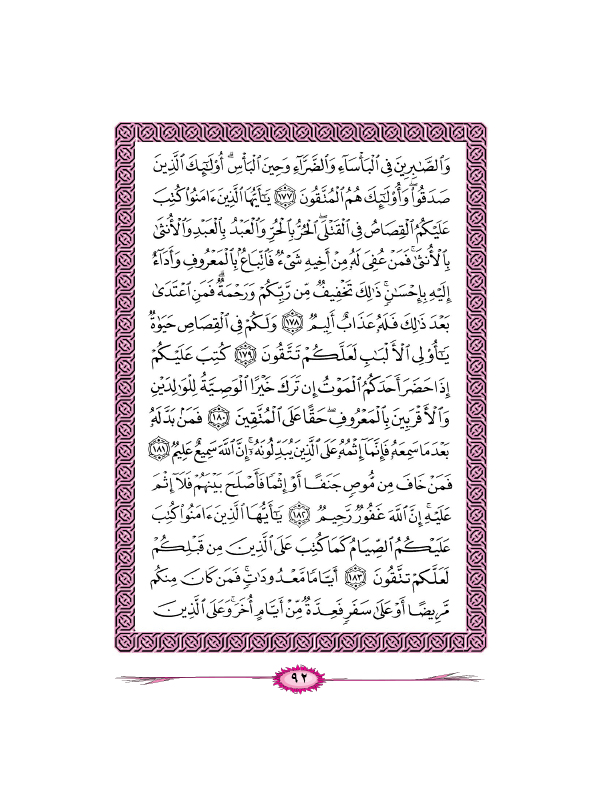 وَالصَّـٰبِرِينَ فِى الْبَأْسَآءِ وَالضَّرَّآءِ وَحِينَ الْبَأْسِ ۗ أُو۟لَـٰٓئِكَ الَّذِينَ
صَدَقُوا۟ ۖ وَأُو۟لَـٰٓئِكَ هُمُ الْمُتَّقُونَ ١٧٧ يَـٰٓأَيُّهَا الَّذِينَ ءَامَنُوا۟ كُتِبَ
عَلَيْكُمُ الْقِصَاصُ فِى الْقَتْلَى ۖ الْحُرُّ بِالْحُرِّ وَالْعَبْدُ بِالْعَبْدِ وَالْأُنثَىٰ
بِالْأُنثَىٰ ۚ فَمَنْ عُفِىَ لَهُۥ مِنْ أَخِيهِ شَىْءٌ فَاتِّبَاعٌۢ بِالْمَعْرُوفِ وَأَدَآءٌ
إِلَيْهِ بِإِحْسَـٰنٍ ۗ ذَٰلِكَ تَخْفِيفٌ مِّن رَّبِّكُمْ وَرَحْمَةٌ ۗ فَمَنِ اعْتَدَىٰ
بَعْدَ ذَٰلِكَ فَلَهُۥ عَذَابٌ أَلِيمٌ ١٧٨ وَلَكُمْ فِى الْقِصَاصِ حَيَوٰةٌ
يَـٰٓأُو۟لِى الْأَلْبَـٰبِ لَعَلَّكُمْ تَتَّقُونَ ١٧٩ كُتِبَ عَلَيْكُمْ
إِذَا حَضَرَ أَحَدَكُمُ الْمَوْتُ إِن تَرَكَ خَيْرًا الْوَصِيَّةُ لِلْوَٰلِدَيْنِ
وَالْأَقْرَبِينَ بِالْمَعْرُوفِ ۖ حَقًّا عَلَى الْمُتَّقِينَ ١٨٠ فَمَنۢ بَدَّلَهُۥ
بَعْدَ مَا سَمِعَهُۥ فَإِنَّمَآ إِثْمُهُۥ عَلَى الَّذِينَ يُبَدِّلُونَهُۥٓ ۚ إِنَّ اللَّهَ سَمِيعٌ عَلِيمٌ ١٨١
فَمَنْ خَافَ مِن مُّوصٍ جَنَفًا أَوْ إِثْمًا فَأَصْلَحَ بَيْنَهُمْ فَلَآ إِثْمَ
عَلَيْهِ ۚ إِنَّ اللَّهَ غَفُورٌ رَّحِيمٌ ١٨٢ يَـٰٓأَيُّهَا الَّذِينَ ءَامَنُوا۟ كُتِبَ
عَلَيْكُمُ الصِّيَامُ كَمَا كُتِبَ عَلَى الَّذِينَ مِن قَبْلِكُمْ
لَعَلَّكُمْ تَتَّقُونَ ١٨٣ أَيَّامًا مَّعْدُودَٰتٍ ۚ فَمَن كَانَ مِنكُم
مَّرِيضًا أَوْ عَلَىٰ سَفَرٍ فَعِدَّةٌ مِّنْ أَيَّامٍ أُخَرَ ۚ وَعَلَى الَّذِينَ
٩٢